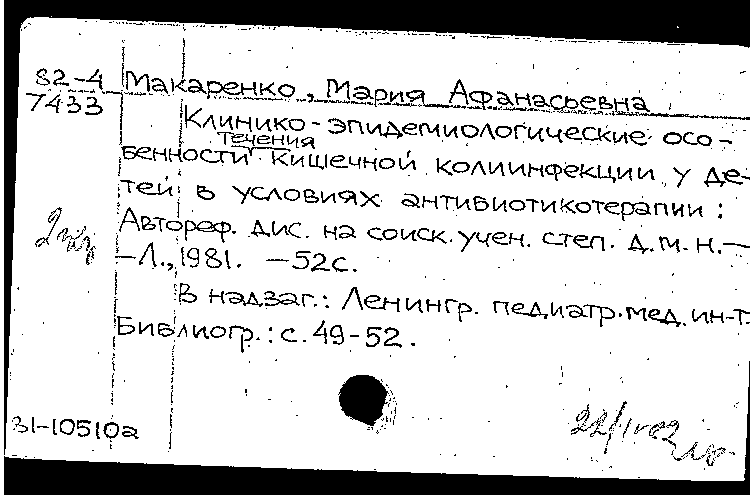 82-4 Макаренко, Мария Афанасьевна
7433
Клинико-эпидемиологические осо-
течения
бенности кишечной колиинфекции у де-
тей в условиях антибиотикотерапии:
Автореф. дис. на соиск. учен. степ. д.м.н.—
—Л., 1981. —52с.
В надзаг.: Ленингр. педиатр. мед. ин-т.
Библиогр.: с. 49-52.
31-10510а